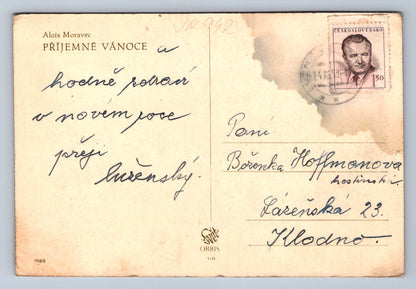 IV 942
Alois Moravec
PŘÍJEMNÉ VÁNOCE
a
hodně zdraví
v novém roce
přeji
ČESKOSLOVENSKO
1.50
Paní
Boženka Hoffmanová
hostinská
Lázeňská 23.
Kladno.
ORBIS